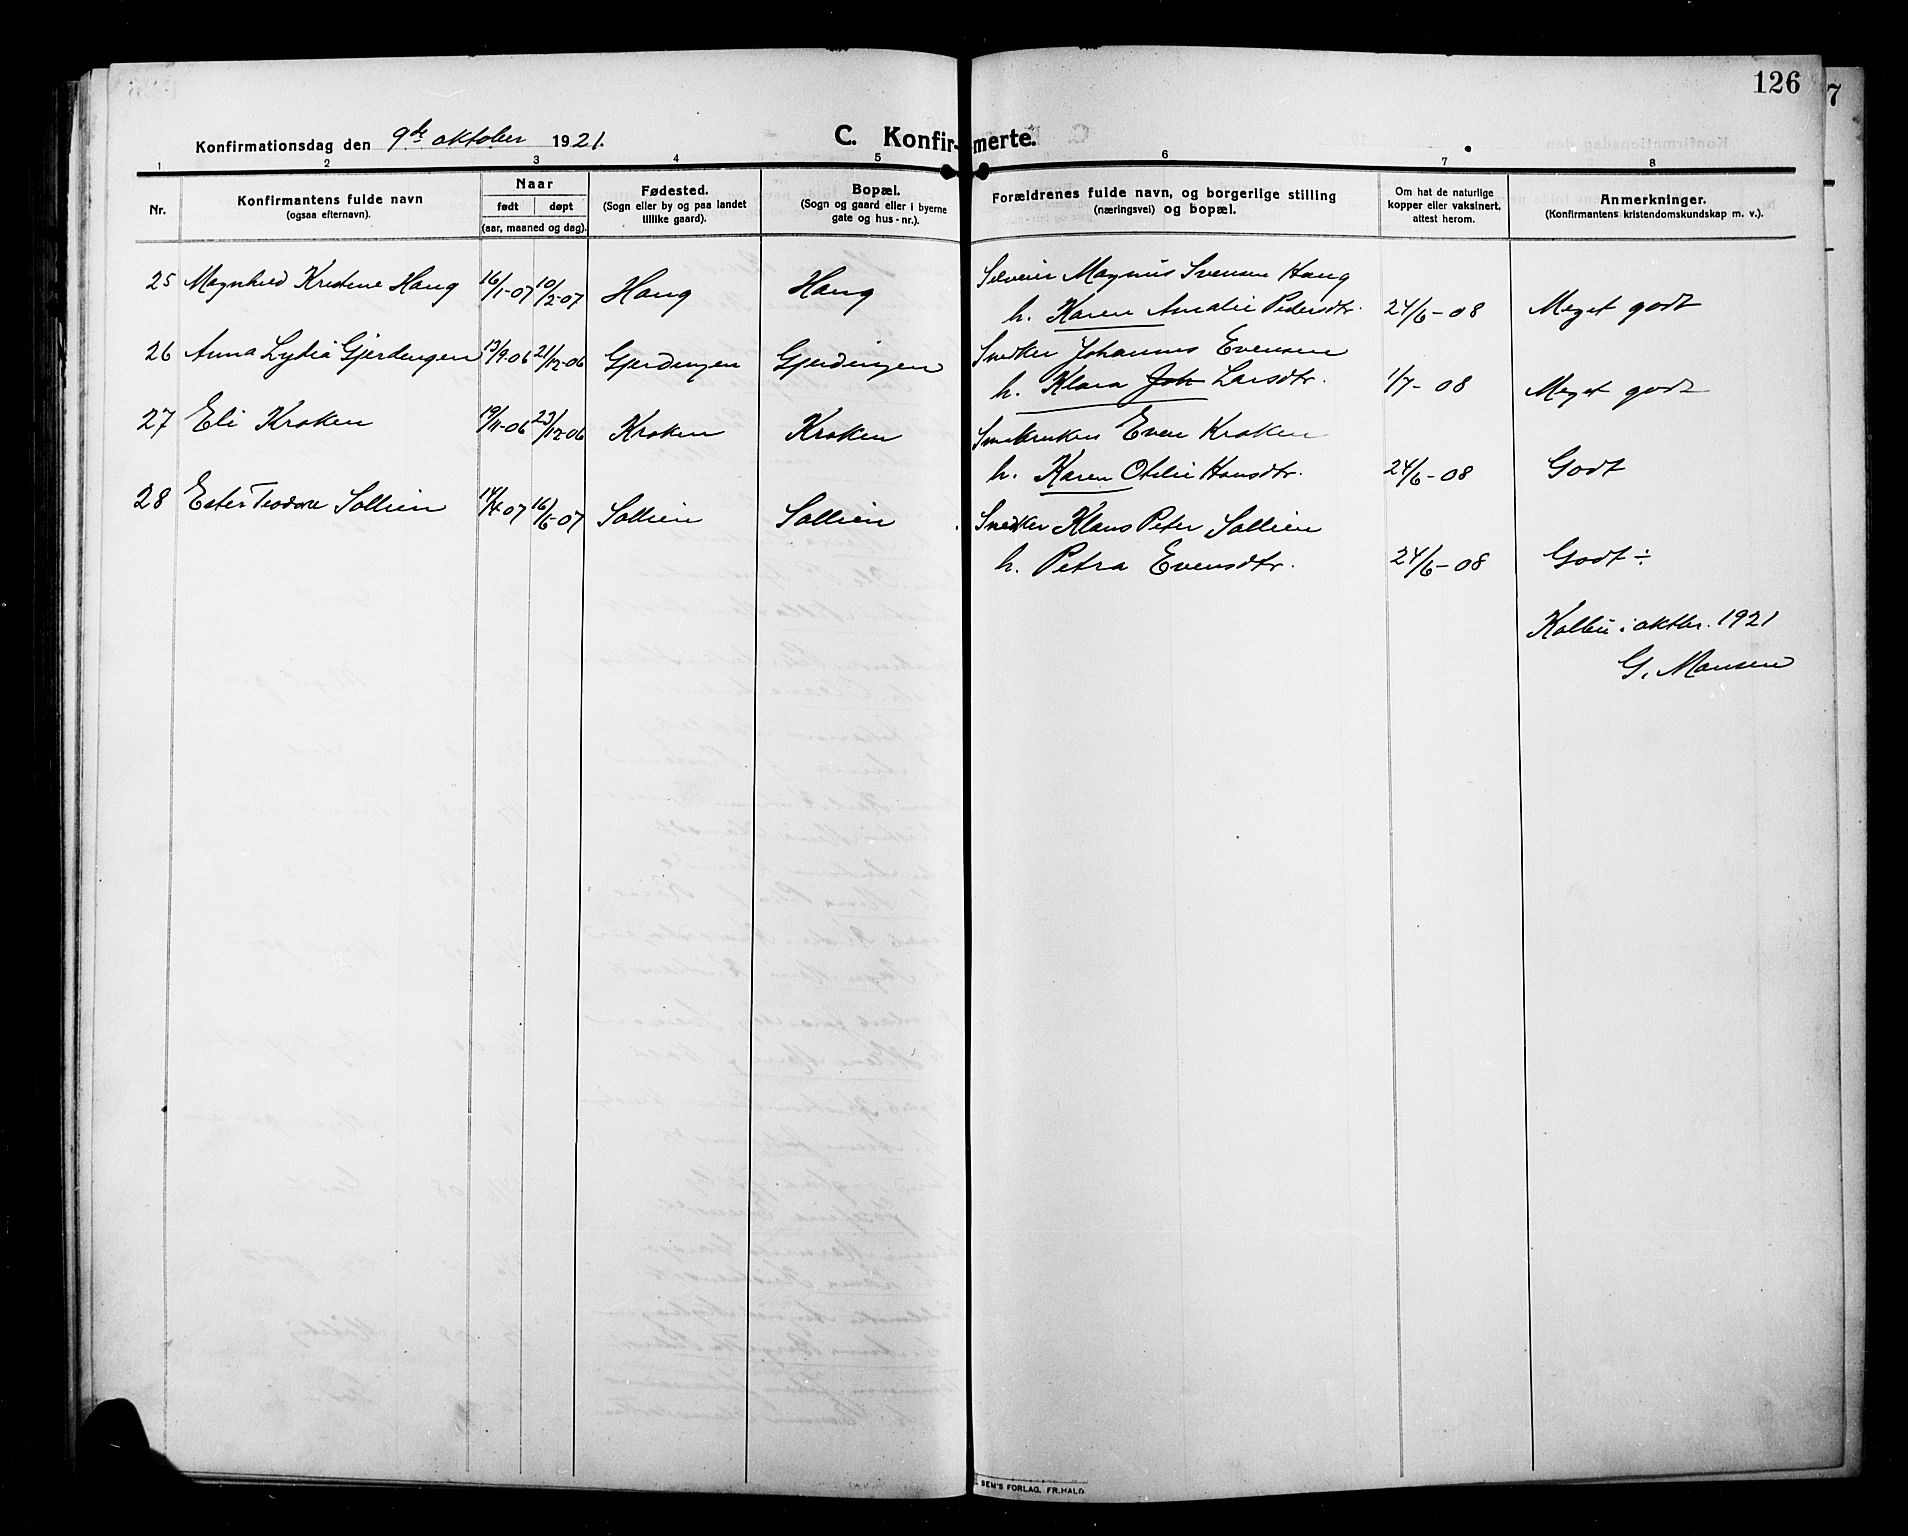 126
7
Konfirmationsdag den 9de oktober 1921.
C. Konfir-merte.
1 2 3 4 5 6 7 8
Nr.
Konfirmantens fulde navn
(ogsaa efternavn).
Naar
født døpt
(aar, maaned og dag).
Fødested.
(Sogn eller by og paa landet
tillike gaard).
Bopæl.
(Sogn og gaard eller i byerne
gate og hus-nr.).
Forældrenes fulde navn, og borgerlige stilling
(næringsvei) og bopæl.
Om hat de naturlige
kopper eller vaksinert,
attest herom.
Anmerkninger.
(Konfirmantens kristendomskundskap m. v.).
25 Magnhild Kristine Haug 16/1-07 10/2-07 Haug Haug Selveier Magnus Svensen Haug
h. Karen Amalie Pedersdtr. 24/6-08 Meget godt
26 Anna Lydia Gjerdengen 13/9-06 21/12-06 Gjerdingen Gjerdingen Snedker Johannes Evensen
h. Klara Joh Larsdtr. 1/7-08 Meget godt
27 Eli Kroken 19/11-06 23/12-06 Kroken Kroken Smabruker Even Kroken
h. Karen Otilie Hansdtr. 24/6-08 Godt
28 Ester Teodore Sollien 14/4-07 16/5-07 Sollien Sollien Snedker Klaus Peter Sollien
h. Petra Evensdtr. 24/6-08 Godt ÷
Kolbu i oktbr. 1921
G. Monsen
SEM'S FORLAG, FR.HALD.